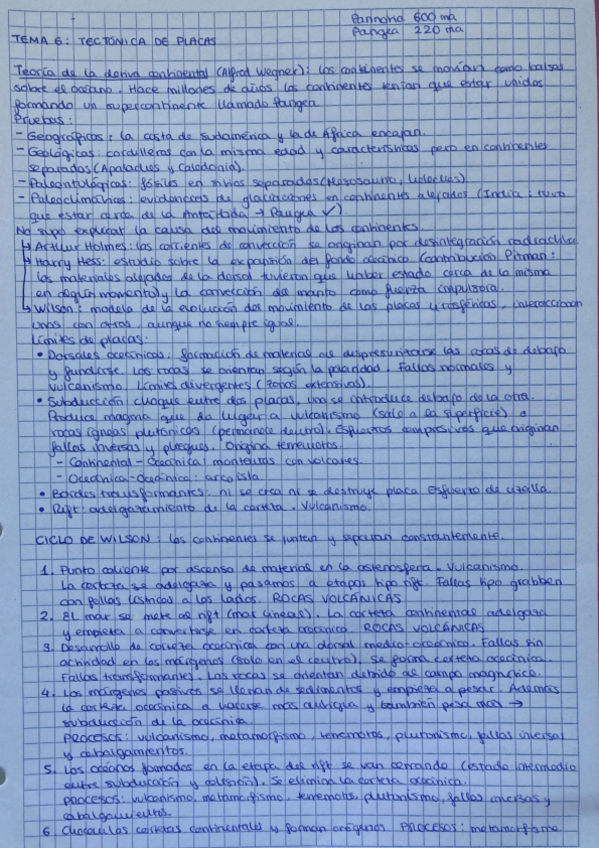 Pannotia 600 ma
Pangea 220 ma
TEMA 6: TECTÓNICA DE PLACAS
Teoría de la deriva continental (Alfred Wegner): los continentes se movían como balsas
sobre el océano. Hace millones de años los continentes tenían que estar unidos
formando un supercontinente llamado Pangea
Pruebas:
- Geográficas: la costa de Sudamérica y la de África encajan.
- Geológicas: cordilleras con la misma edad y características pero en continentes
separados (Apalaches y Caledonia).
- Paleontológicas: fósiles en sitios separados (Mesosaurio, helechos).
- Paleoclimáticas: evidencias de glaciaciones en continentes alejados (India: tuvo
que estar cerca de la Antártida → Pangea ✓)
No supo explicar la causa del movimiento de los continentes
↳ Arthur Holmes: las corrientes de convección se originan por desintegración radiactiva
↳ Harry Hess: estudio sobre la expansión del fondo oceánico (contribución Pitman:
los materiales alejados de la dorsal tuvieron que haber estado cerca de la misma
en algún momento) y la convección del manto como fuerza impulsora.
↳ Wilson: modelo de la evolución del movimiento de las placas litosféricas, interaccionan
unas con otras, aunque no siempre igual.
Límites de placas:
• Dorsales oceánicas: formación de material al despresurizarse las rocas de debajo
y fundirse. Las rocas se orientan según la polaridad. Fallas normales y
vulcanismo. Límites divergentes (zonas extensivas).
• Subducción: choque entre dos placas, una se introduce debajo de la otra.
Produce magma que da lugar a vulcanismo (sale a la superficie) o
rocas ígneas plutónicas (permanece dentro). Esfuerzos compresivos que originan
fallas inversas y pliegues. Origina terremotos.
- Continental - Oceánica: montañas con volcanes.
- Oceánica-oceánica: arco isla.
• Bordes transformantes: ni se crea ni se destruye placa. Esfuerzo de cizalla.
• Rift: adelgazamiento de la corteza. Vulcanismo.
CICLO DE WILSON: los continentes se juntan y separan constantemente.
1. Punto caliente por ascenso de materiales en la astenosfera. Vulcanismo.
La corteza se adelgaza y pasamos a etapas tipo rift. Fallas tipo grabben
con fallas lístricas a los lados. ROCAS VOLCÁNICAS
2. El mar se mete al rift (mar lineal). La corteza continental adelgaza
y empieza a convertirse en corteza oceánica. ROCAS VOLCÁNICAS
3. Desarrollo de corteza oceánica con una dorsal medio-oceánica. Fallas sin
actividad en los márgenes (solo en el centro), se forma corteza oceánica.
Fallas transformantes. Las rocas se orientan debido al campo magnético.
4. Los márgenes pasivos se llenan de sedimentos y empieza a pesar. Además
la corteza oceánica al hacerse más antigua y también pesa más →
subducción de la oceánica.
PROCESOS: vulcanismo, metamorfismo, terremotos, plutonismo, fallas inversas
y cabalgamientos.
5. Los océanos formados en la etapa del rift se van cerrando (estado intermedio
entre subducción y colisión). Se elimina la corteza oceánica.
PROCESOS: vulcanismo, metamorfismo, terremotos, plutonismo, fallas inversas y
cabalgamientos.
6. Chocan las cortezas continentales y forman orógenos. PROCESOS: metamorfismo